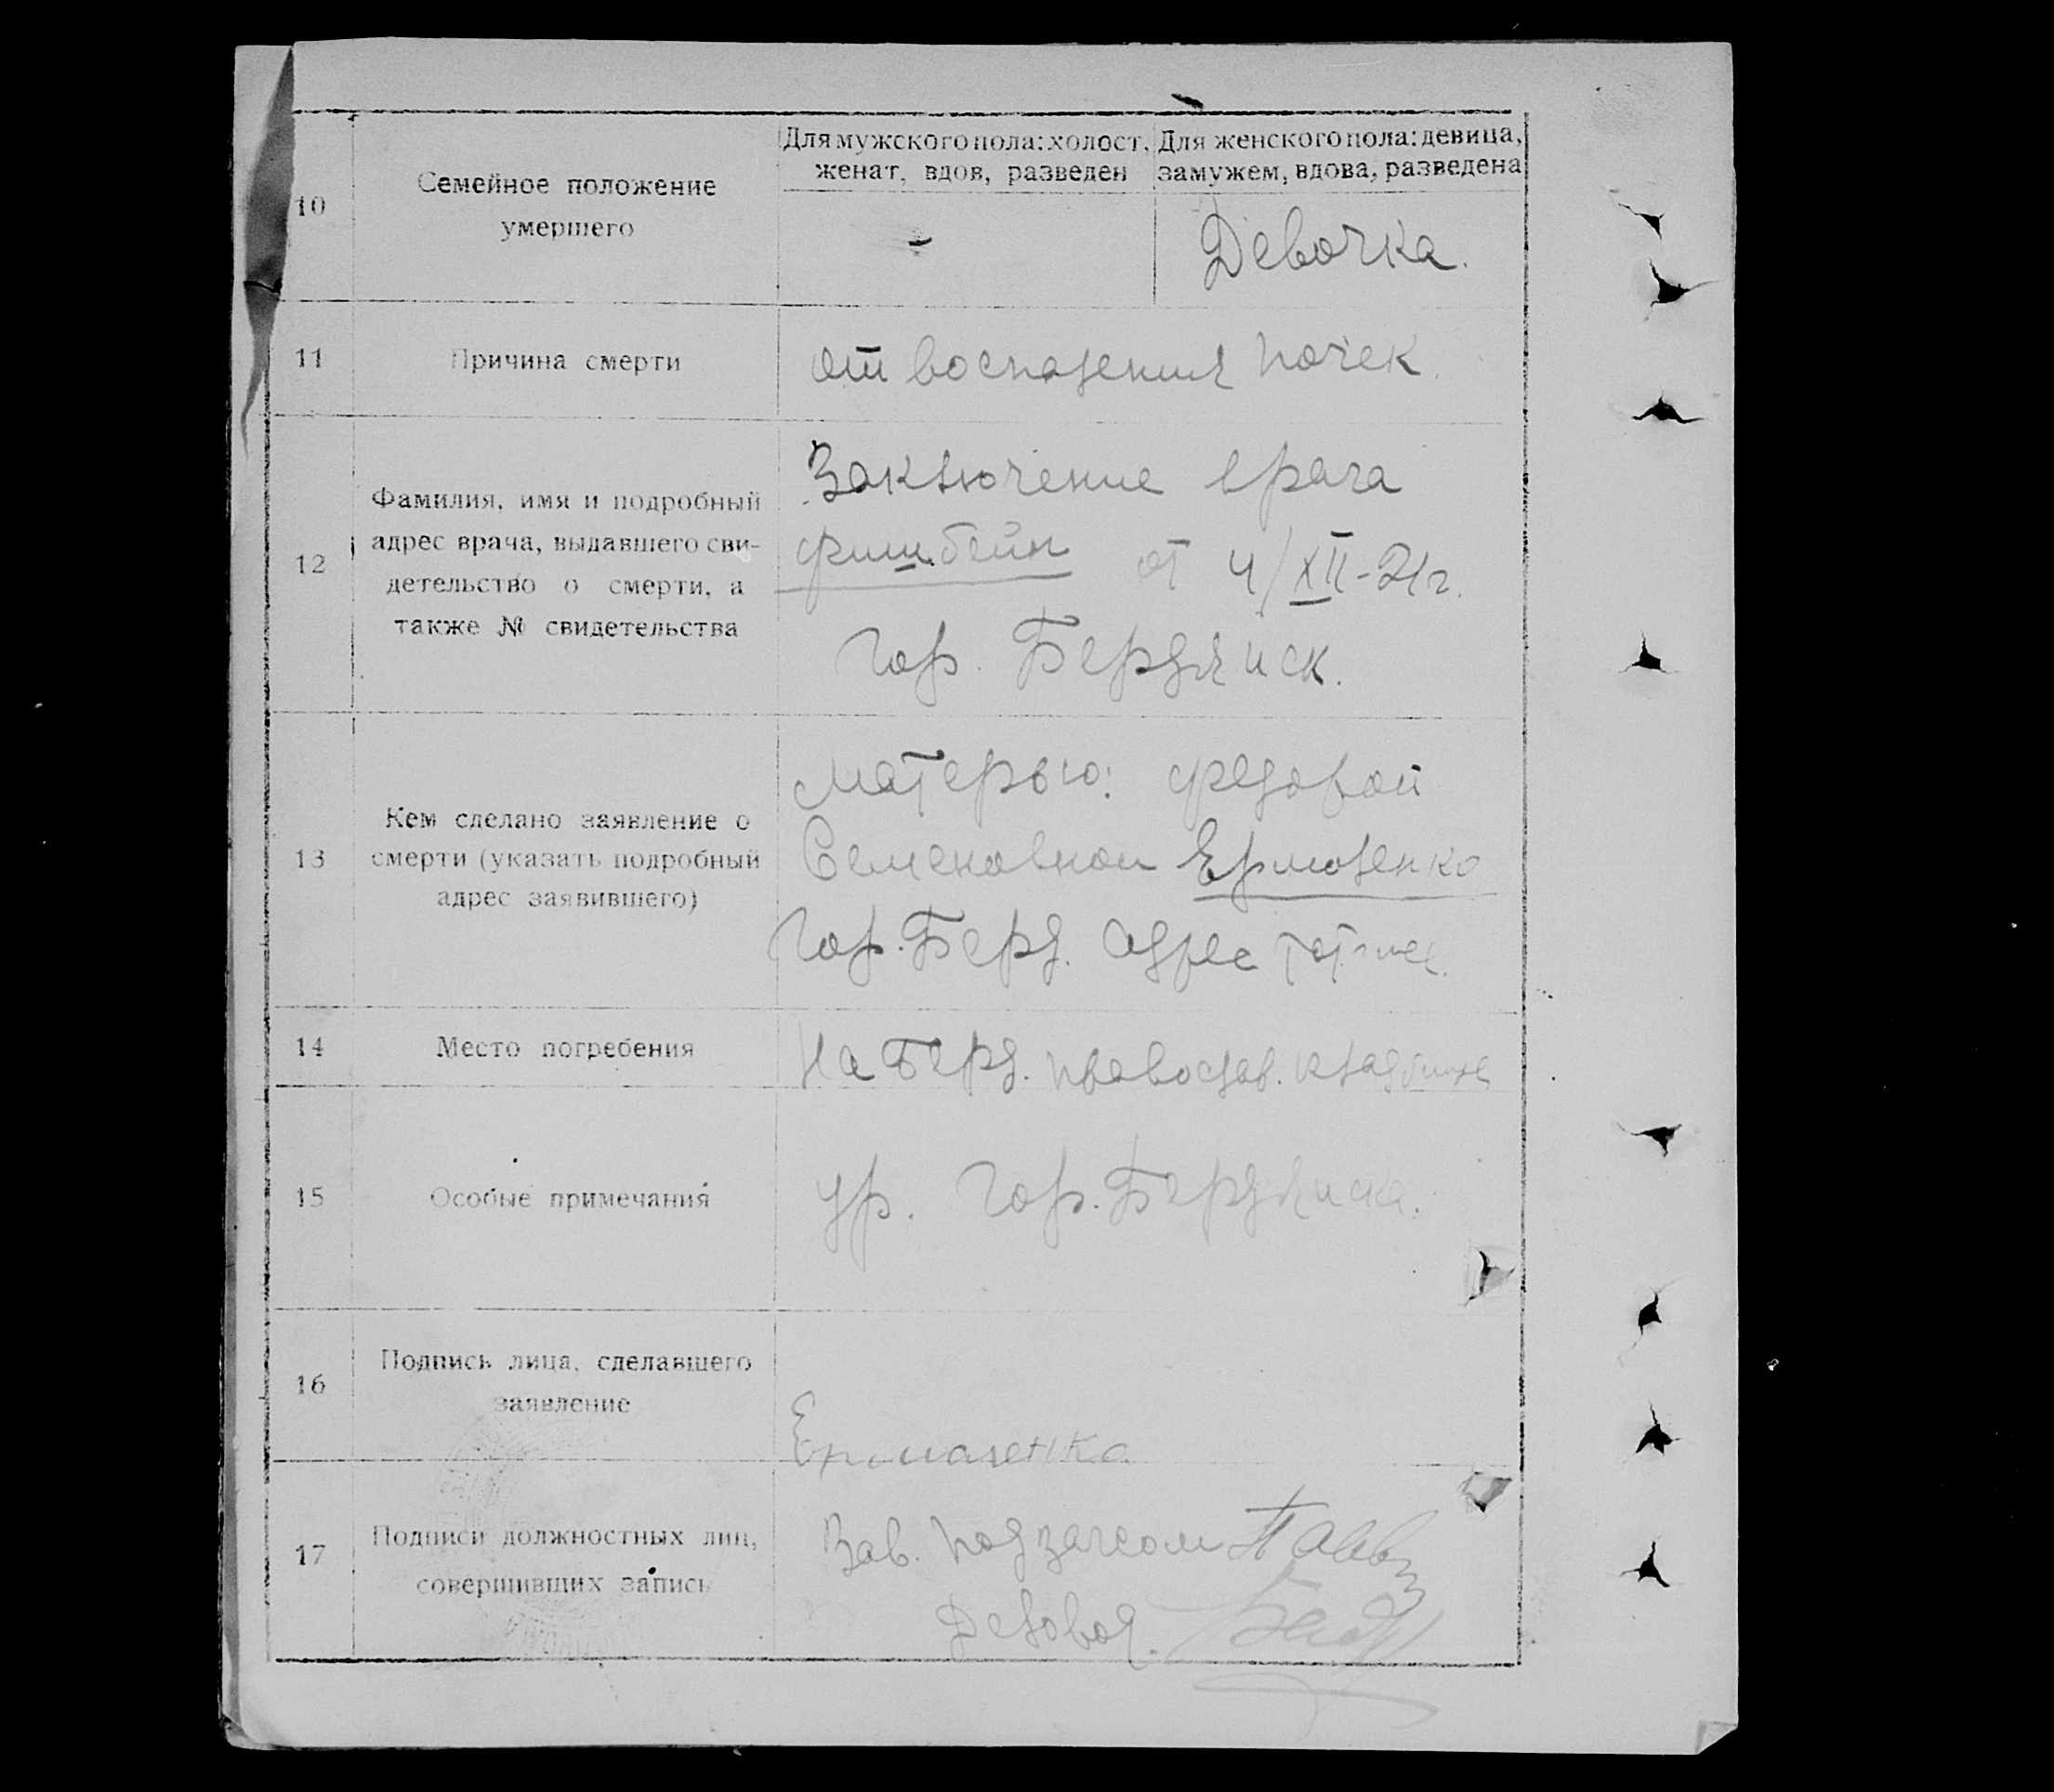 10
Семейное положение
умершего
Для мужского пола: холост,
женат, вдов, разведен
Для женского пола: девица,
замужем, вдова, разведена
-
Девочка.
11
Причина смерти
от воспаления почек.
12
Фамилия, имя и подробный
адрес врача, выдавшего сви-
детельство о смерти, а
также № свидетельства
Заключение врача
Фишбейн от 4/XII-21г.
гор. Бердянск.
13
Кем сделано заявление о
смерти (указать подробный
адрес заявившего)
Матерью: Федорой
Семеновной Ермоленко
гор. Берд. адрес тот-же.
14
Место погребения
На Берд. православ. кладбище
15
Особые примечания
ур. гор. Бердянска.
16
Подпись лица, сделавшего
заявление
17
Подписи должностных лиц,
совершивших запись
Зав. подзагсом
Деловод.